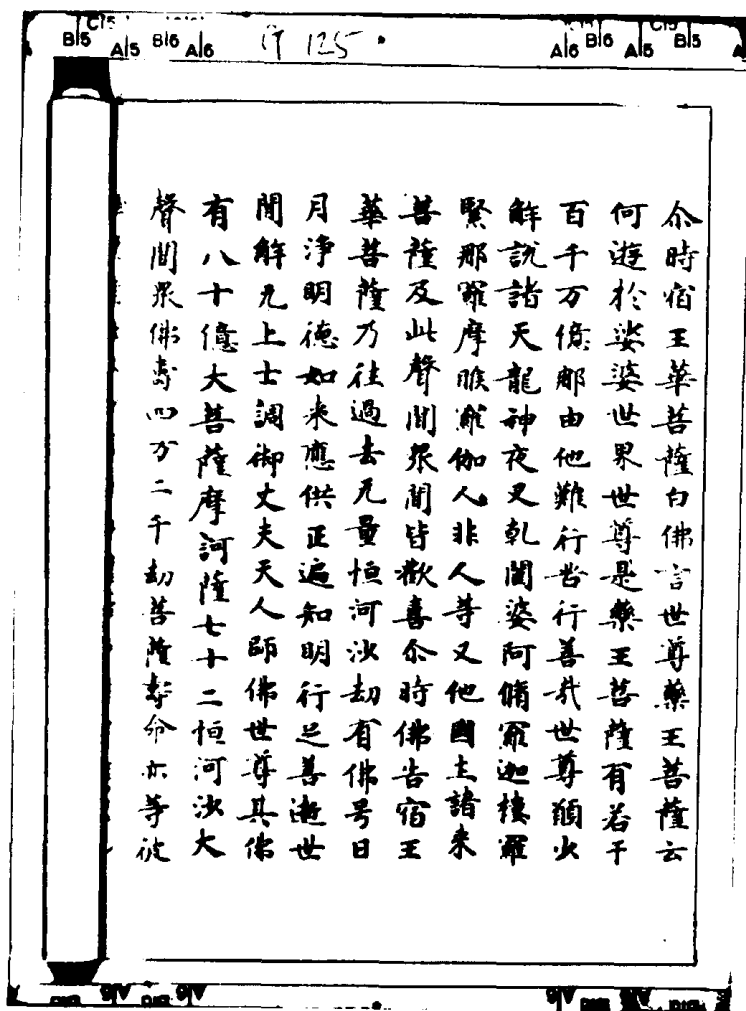 B5 A5 B6 A6 19 125 A6 B6 A5 B5
尒時宿王華菩薩白佛言世尊藥王菩薩云
何遊於娑婆世界世尊是藥王菩薩有若干
百千万億那由他難行苦行善哉世尊願少
解說諸天龍神夜叉乹闥婆阿脩羅迦樓羅
緊那羅摩睺羅伽人非人等又他國土諸來
菩薩及此聲聞衆聞皆歡喜尒時佛告宿王
華菩薩乃往過去无量恒河沙劫有佛号日
月淨明德如來應供正遍知明行足善逝世
間解无上士調御丈夫天人師佛世尊其佛
有八十億大菩薩摩訶薩七十二恒河沙大
聲聞衆佛壽四万二千劫菩薩壽命亦等彼